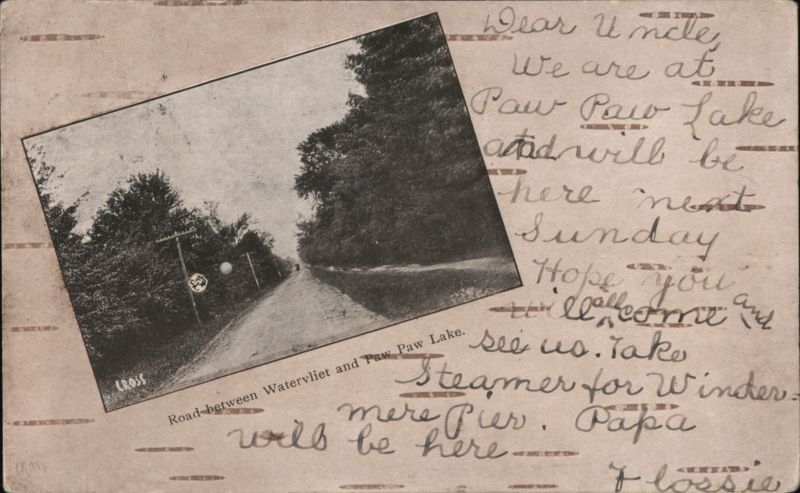 Dear Uncle,
We are at
Paw Paw Lake
and will be
here next
Sunday
Hope you
will all come and
see us. Take
Steamer for Winder-
mere Pier. Papa
will be here
Flossie
CROSS
Road between Watervliet and Paw Paw Lake.
CROSS